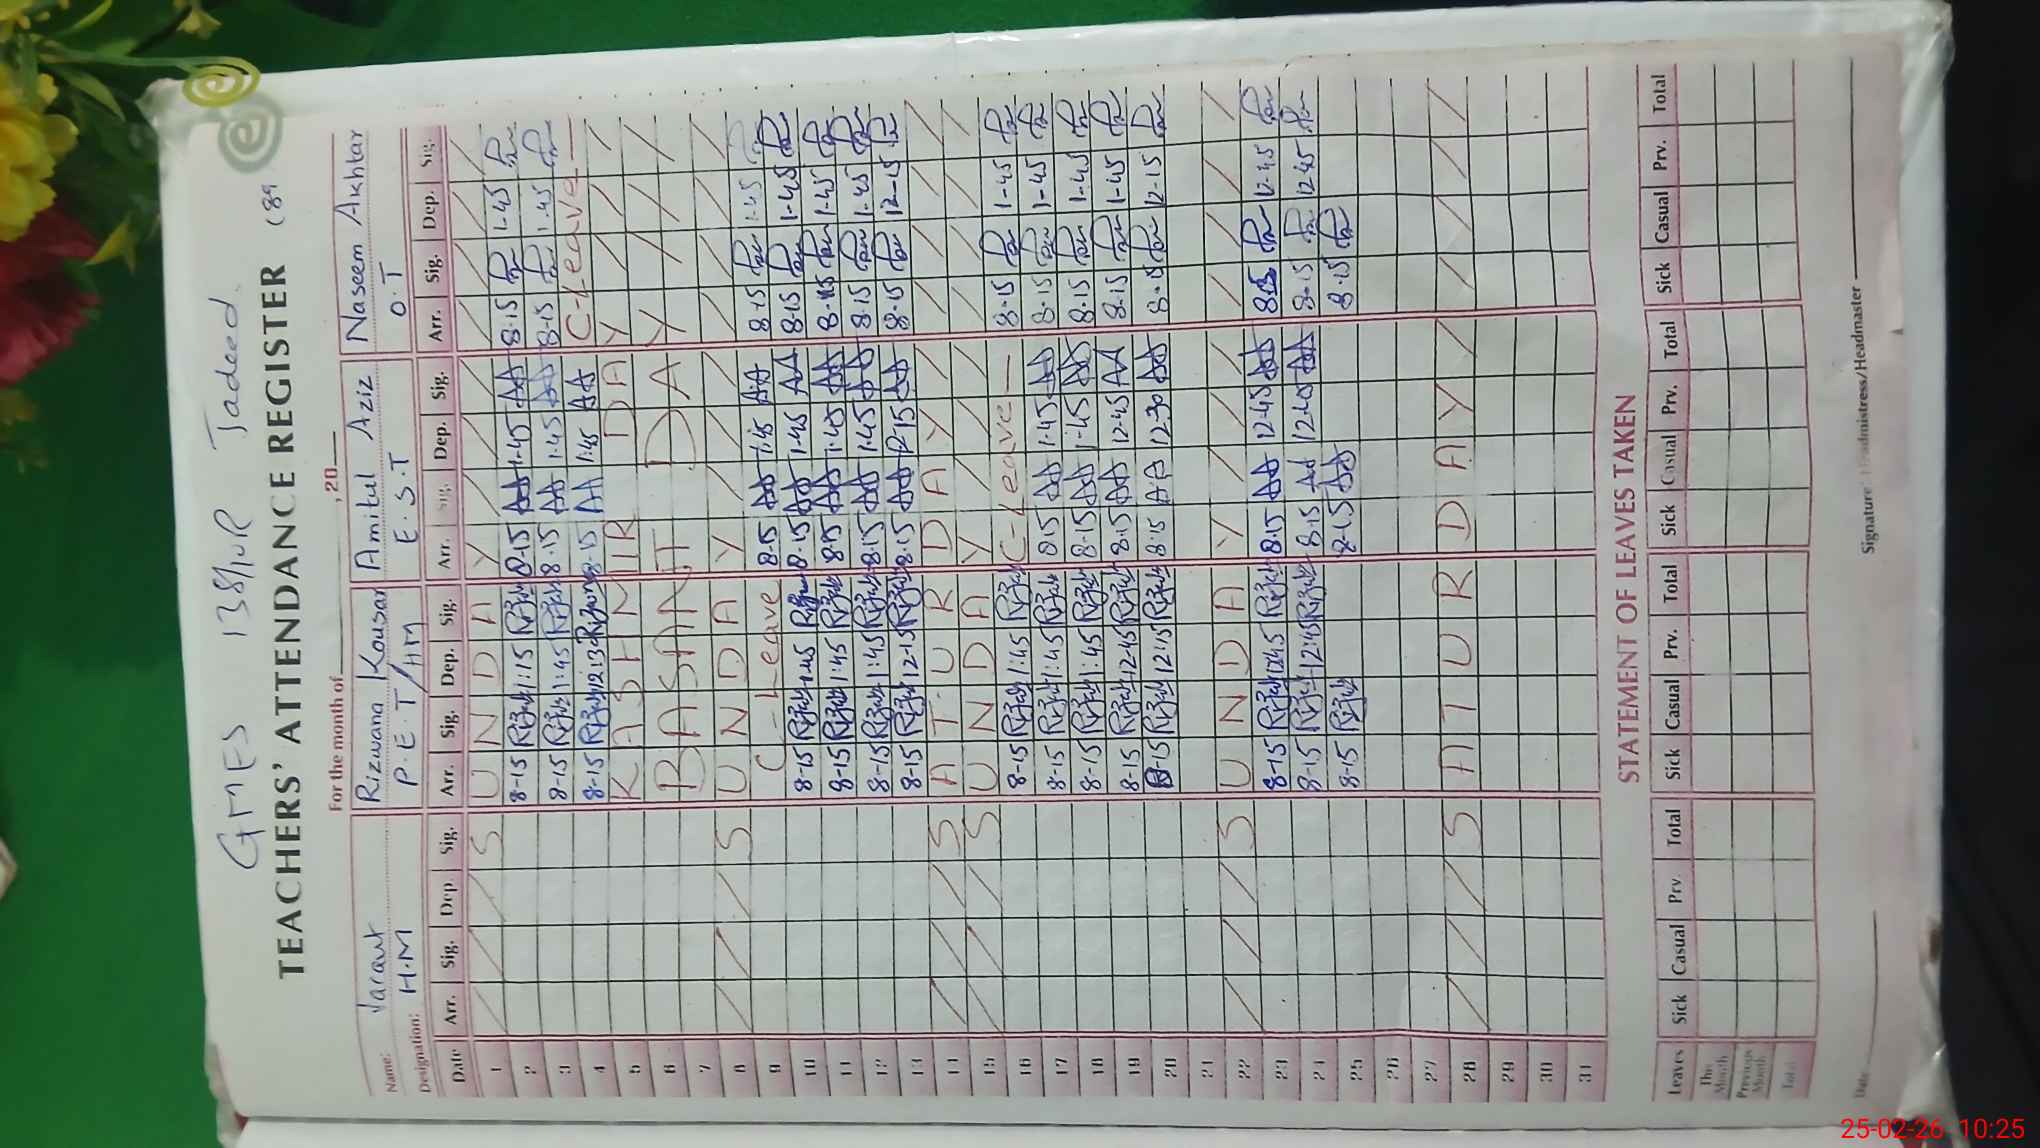 GMES 138/10R Jadeed
TEACHERS' ATTENDANCE REGISTER (89
For the month of , 20
Name: Vacant Rizwana Kousar Amitul Aziz Naseem Akhtar
Designation: H.M P.E.T/HM E.S.T O.T
Date Arr. Sig. Dep. Sig. Arr. Sig. Dep. Sig. Arr. Sig. Dep. Sig. Arr. Sig. Dep. Sig.
1 S U N D A Y
2 8-15 1:15 8-15 1-45 8-15 1-45
3 8-15 1:45 8-15 1-45 8-15 1-45
4 8-15 12:13 8-15 1:45 C-Leave
5 K A S H M I R D A Y
6 B A S A N T D A Y
7
8 S U N D A Y
9 C-Leave 8-15 1:45 8-15 1-45
10 8-15 1-45 8-15 1-45 8-15 1-45
11 8-15 1:45 8-15 1:45 8-15 1-45
12 8-15 1:45 8-15 1:45 8-15 1-45
13 8-15 12-15 8-15 12-15 8-15 12-15
14 S A T U R D A Y
15 S U N D A Y
16 8-15 1:45 C-Leave 8-15 1-45
17 8-15 1:45 8-15 1-45 8-15 1-45
18 8-15 1:45 8-15 1-45 8-15 1-45
19 8-15 12-45 8-15 12-45 8-15 1-45
20 8-15 12:15 8-15 12-30 8-15 12-15
21
22 S U N D A Y
23 8-15 12:45 8-15 12-45 8-15 12-45
24 8-15 12:45 8-15 12-45 8-15 12-45
25 8-15 8-15 8-15
26
27
28 S A T U R D A Y
29
30
31
STATEMENT OF LEAVES TAKEN
Leaves Sick Casual Prv. Total Sick Casual Prv. Total Sick Casual Prv. Total Sick Casual Prv. Total
This Month
Previous Month
Total
Date Signature Headmistress/Headmaster
25-02-26 10:25